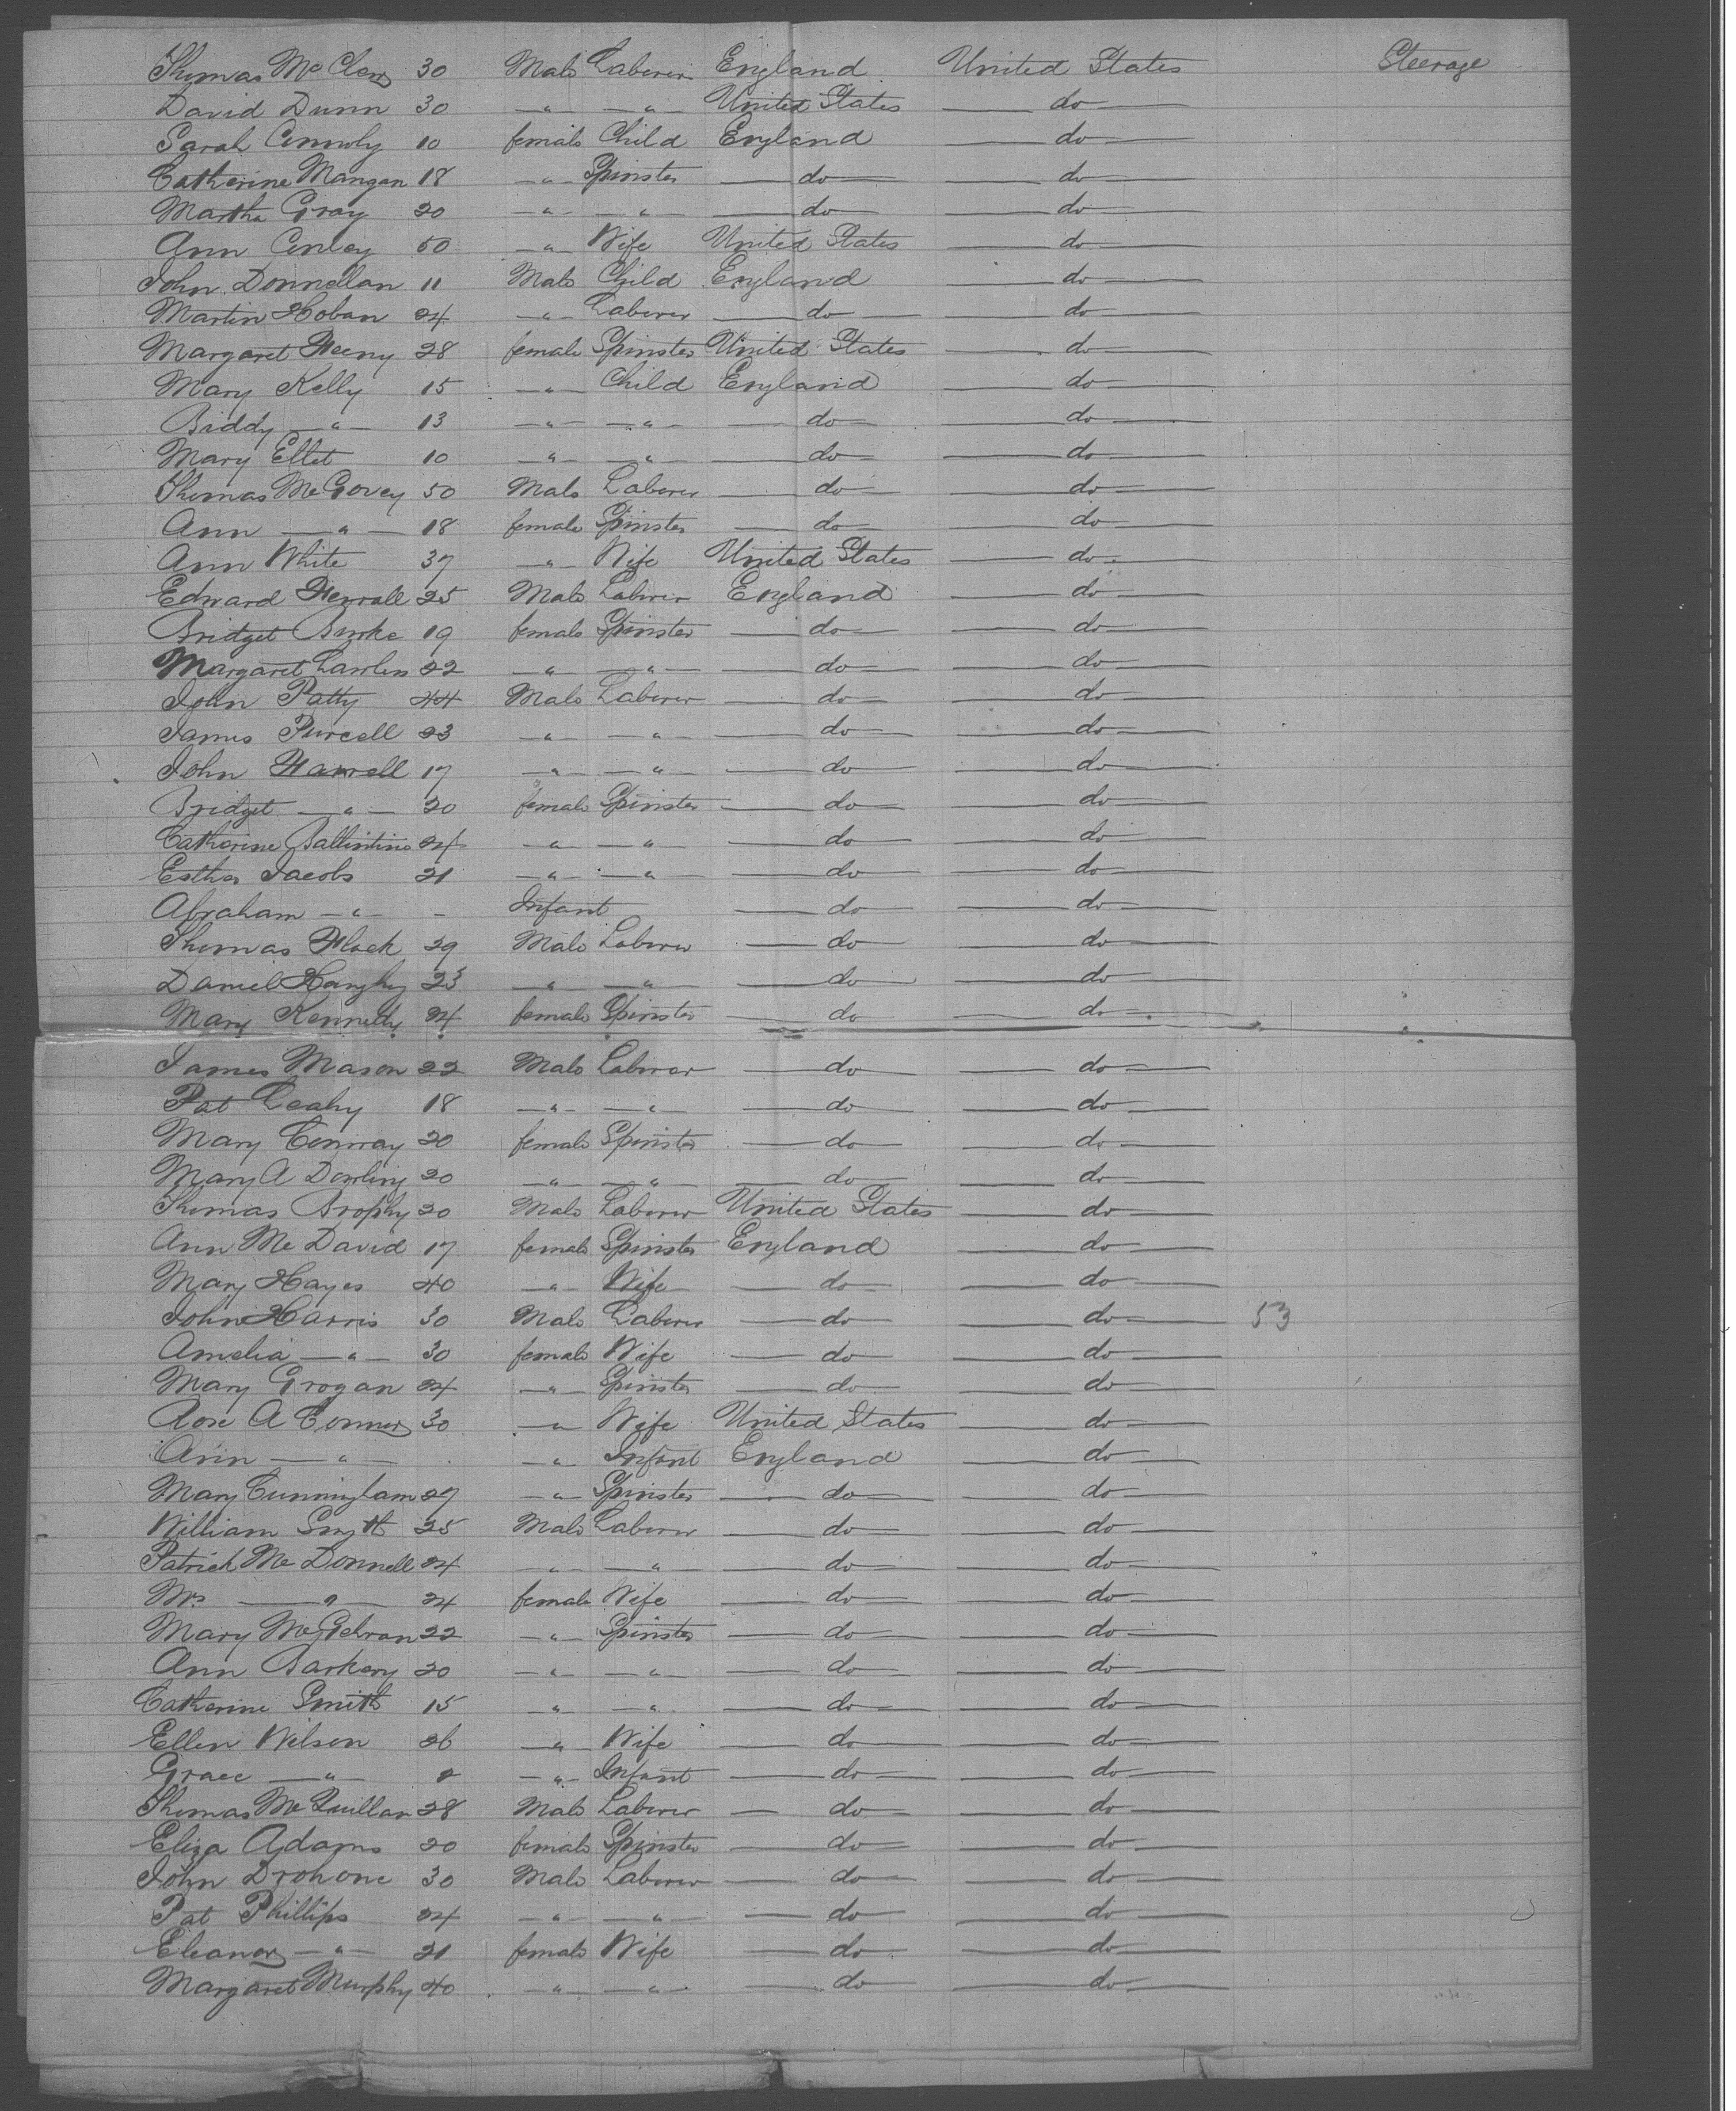 Thomas McClen 30 Male Laborer England United States Steerage
David Dunn 30 " " United States do
Sarah Connoly 10 female Child England do
Catherine Mangan 18 " Spinster do do
Martha Gray 20 " " do do
Ann Conley 50 " Wife United States do
John Donnellan 11 Male Child England do
Martin Hoban 24 " Laborer do do
Margaret Feeny 28 female Spinster United States do
Mary Kelly 15 " Child England do
Biddy " 13 " " do do
Mary Ellet 10 " " do do
Thomas McGovey 50 Male Laborer do do
Ann " 18 female Spinster do do
Ann White 37 " Wife United States do
Edward Ferrall 25 Male Laborer England do
Bridget Burke 19 female Spinster do do
Margaret Lawless 22 " " do do
John Patty 44 Male Laborer do do
James Purcell 23 " " do do
John Farrell 17 " " do do
Bridget " 20 female Spinster do do
Catherine Ballintine 24 " " do do
Esther Jacobs 21 " " do do
Abraham " - Infant do do
Thomas Flack 29 Male Laborer do do
Daniel 23 " " do do
Mary Kennedy 24 female Spinster do do
James Mason 22 Male Laborer do do
Pat Leahy 18 " " do do
Mary Conway 20 female Spinster do do
Mary A Dowling 20 " " do do
Thomas Brophy 20 Male Laborer United States do
Ann McDavid 17 female Spinster England do
Mary Hayes 40 " Wife do do
John Harris 30 Male Laborer do do 53
Amelia " 30 female Wife do do
Mary Grogan 24 " Spinster do do
Rose A Connor 30 " Wife United States do
Ann " " Infant England do
Mary Cunningham 27 " Spinster do do
William Smyth 25 Male Laborer do do
Patrick McDonnell 24 " " do do
Mrs " 24 female Wife do do
Mary 22 " Spinster do do
Ann Barkery 20 " " do do
Catherine Smith 15 " " do do
Ellen Wilson 26 " Wife do do
Grace " " Infant do do
Thomas McQuillan 28 Male Laborer do do
Eliza Adams 20 female Spinster do do
John Drohone 30 Male Laborer do do
Pat Phillips 24 " " do do
Eleanor " 21 female Wife do do
Margaret Murphy 40 " " do do